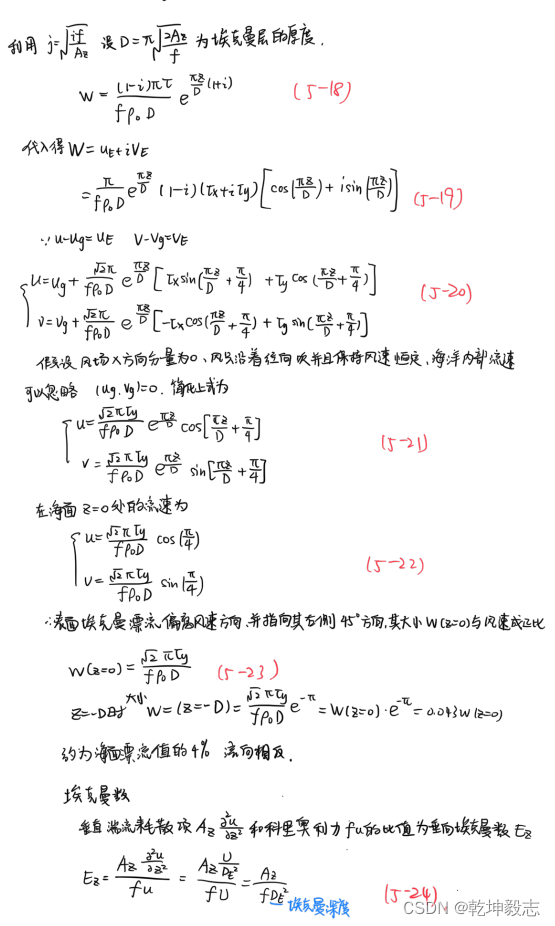 利用 j=√(if/Az) 设 D=π√(2Az/f) 为埃克曼层的厚度.
W = (1-i)πτ / fρ₀D e^(πz/D (1+i)) (5-18)
代入得 W=uE+iVE
= π/fρ₀D e^(πz/D) (1-i)(τx+iτy)[cos(πz/D)+isin(πz/D)] (5-19)
∵u-ug=uE V-Vg=VE
u=ug+ √2π/fρ₀D e^(πz/D) [τx sin(πz/D+π/4) +τy cos(πz/D+π/4)]
(5-20)
v=vg+ √2π/fρ₀D e^(πz/D) [-τx cos(πz/D+π/4)+τy sin(πz/D+π/4)]
假设风场X方向分量为0、风只沿着经向吹并且保持风速恒定、海洋内部流速
可以忽略 (ug,vg)=0. 简化上式为
u= √2πτy/fρ₀D e^(πz/D) cos[πz/D+π/4]
(5-21)
v= √2πτy/fρ₀D e^(πz/D) sin[πz/D+π/4]
在海面z=0处的流速为
u= √2πτy/fρ₀D cos(π/4)
(5-22)
v= √2πτy/fρ₀D sin(π/4)
∴表面埃克曼漂流偏离风速方向,并指向其右侧45°方向,其大小W(z=0)与风速成正比
W(z=0)= √2πτy/fρ₀D (5-23)
z=-D时 大小 W=(z=-D)= √2πτy/fρ₀D e^(-π) =W(z=0)·e^(-π)=0.043W(z=0)
约为海面漂流值的4% 流向相反.
埃克曼数
垂直湍流耗散项 Az ∂²u/∂z² 和科里奥利力fu的比值为垂向埃克曼数Ez
Ez= Az ∂²u/∂z² / fu = Az U/DE² / fU = Az/fDE² (5-24)
→埃克曼深度
CSDN @乾坤毅志